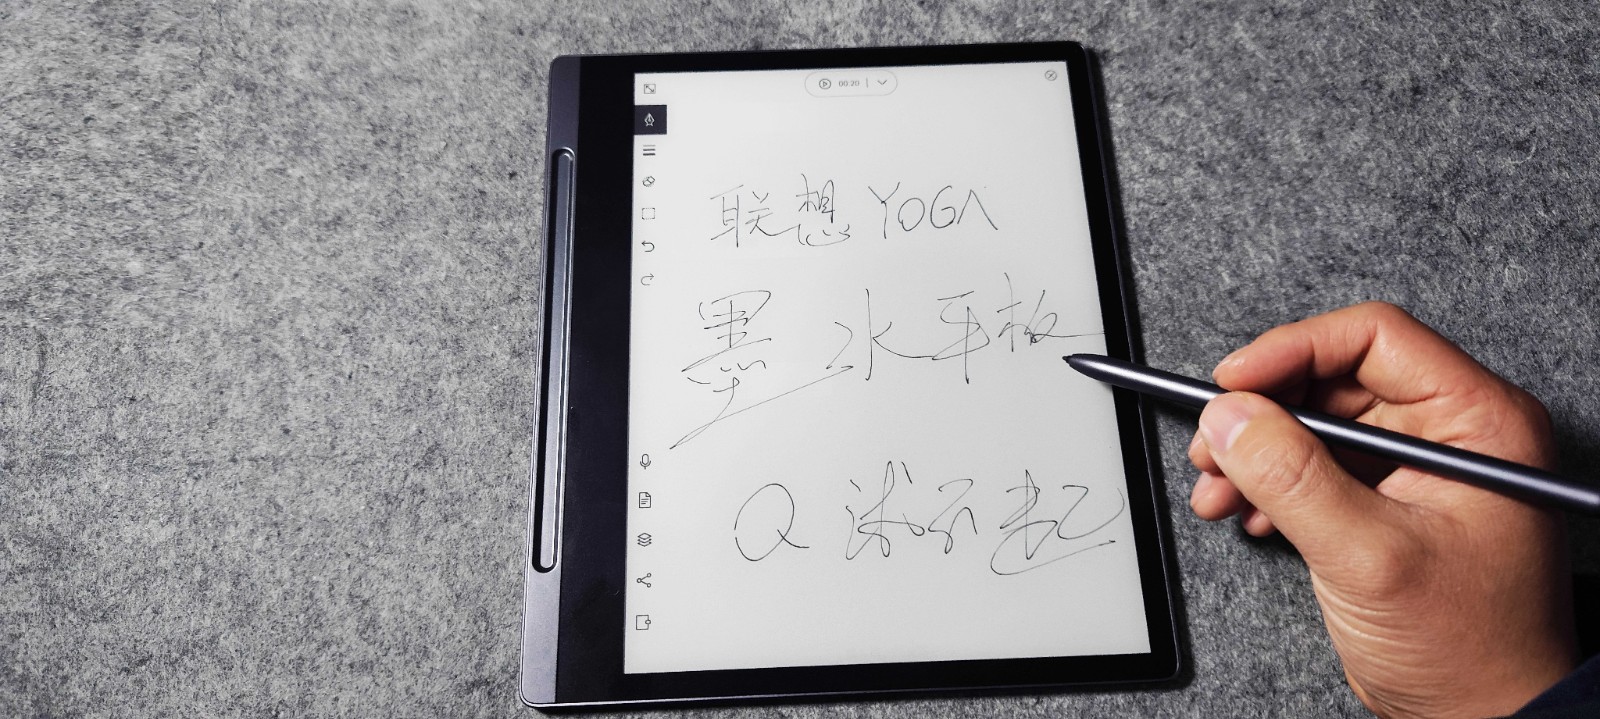 00:20
联想 YOGA
墨水平板
Q